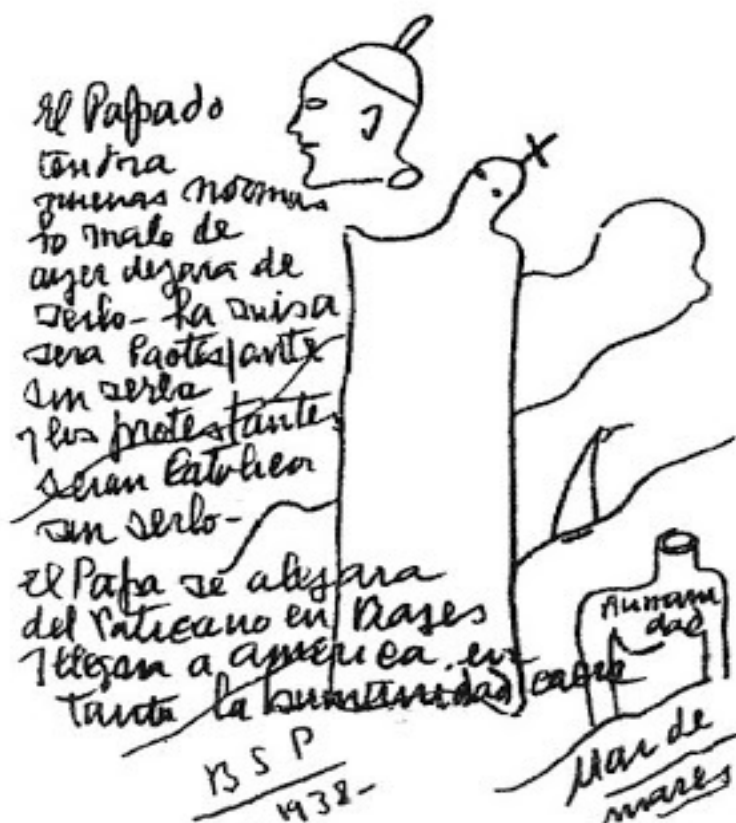 El Papado
tendra
nuevas normas
lo malo de
ayer dejara de
serlo - La misa
sera Protestante
sin serla
y los protestantes
seran Catolicos
sin serlo -
El Papa se alejara
del Vaticano en Viajes
y llegara a america. en
tanto la humanidad caera
B S P
1938 -
Humani
dad
Mar de
mares